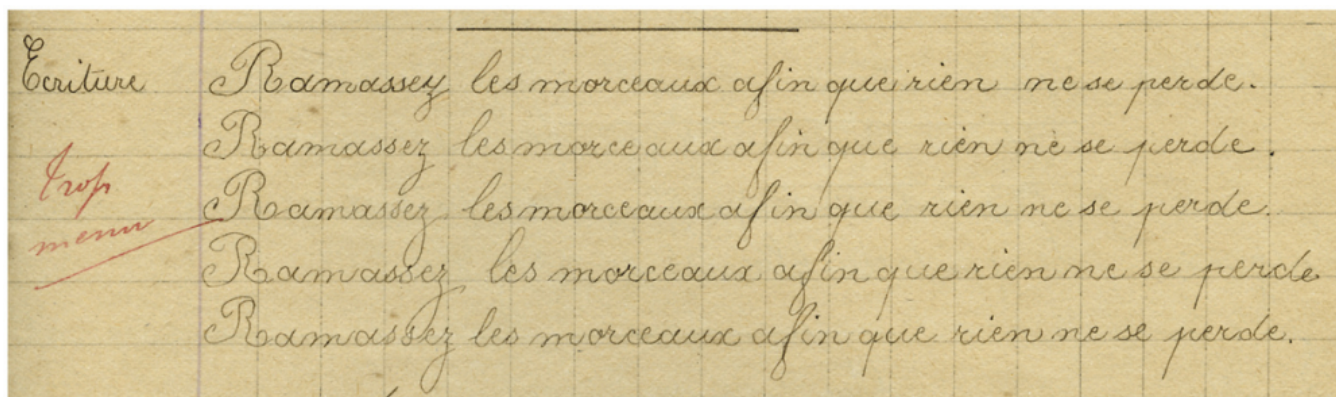 Ecriture Ramassez les morceaux afin que rien ne se perde.
Ramassez les morceaux afin que rien ne se perde.
trop
Ramassez les morceaux afin que rien ne se perde.
menu
Ramassez les morceaux afin que rien ne se perde.
Ramassez les morceaux afin que rien ne se perde.